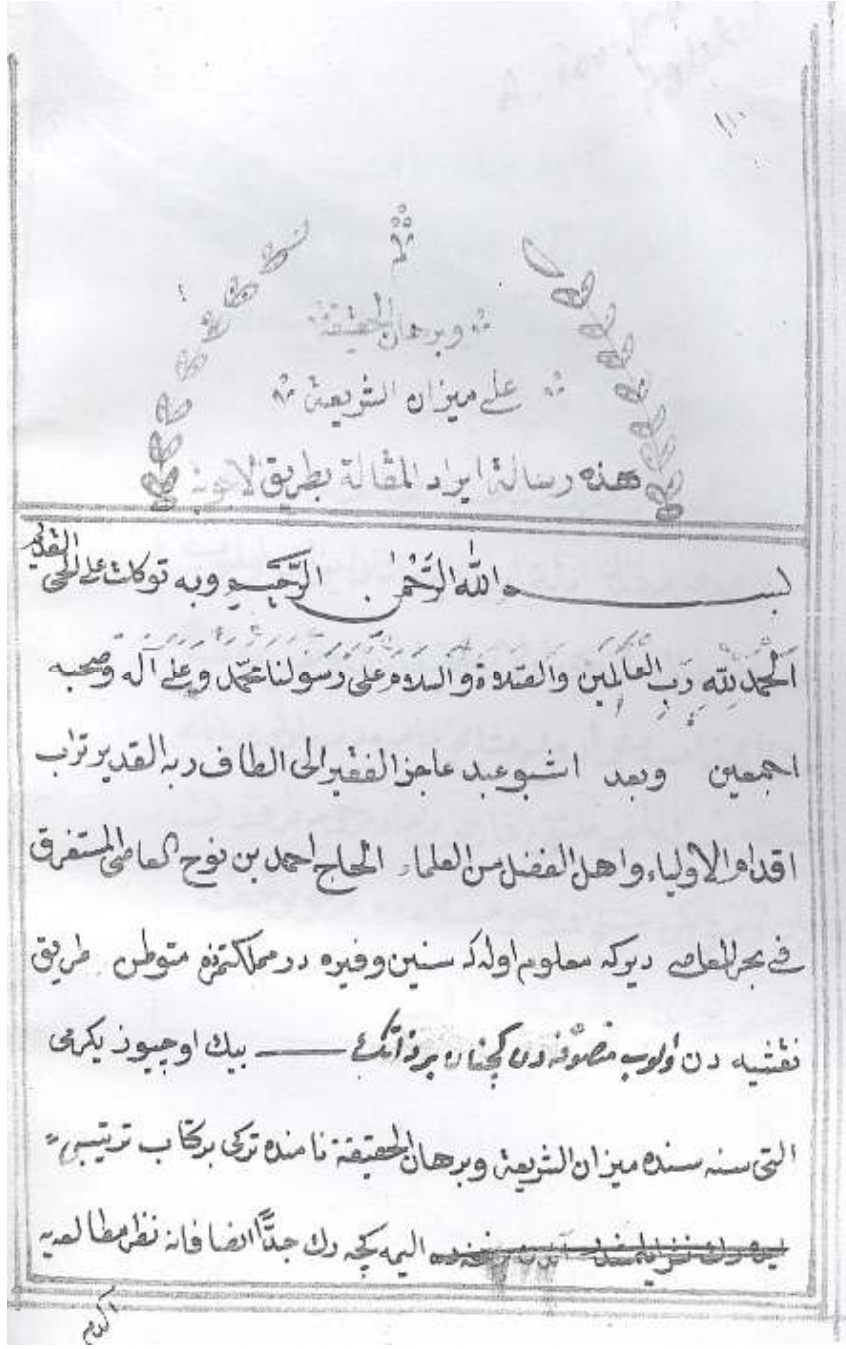 وبرهان الحقيقة
على ميزان الشريعة
هذه رسالة ايراد المقالة بطريق
بسم الله الرَّحْمٰن الرَّحيم وبه توكلت على الحى القديم
اَلحَمْدُ لِلّٰه رَبِ العَالَمِين وَالصَّلاوة والسلام عَلى رَسَولنا محَمّد وَعلى آله وصحبه
اجمعين وبعد اشبو عبد عاجز الفقير الى الطاف ربه القدير تراب
اقدام الاولياء واهل الفضل من العلماء الحاج احمد بن نوح العاصى المستغرق
فى بحر المعاصى ديركه معلوم اوله كه سنين وفيره در مملكتمزه متوطن طريق
نقشيه دن اولوب متصوفه دن بيك اوچيوز يكرمى
التى سنه سنده ميزان الشريعة وبرهان الحقيقة نامنده تركى بر كتاب ترتيب
اليمه كچه رك جدًّا انصافانه نظر مطالعه يه